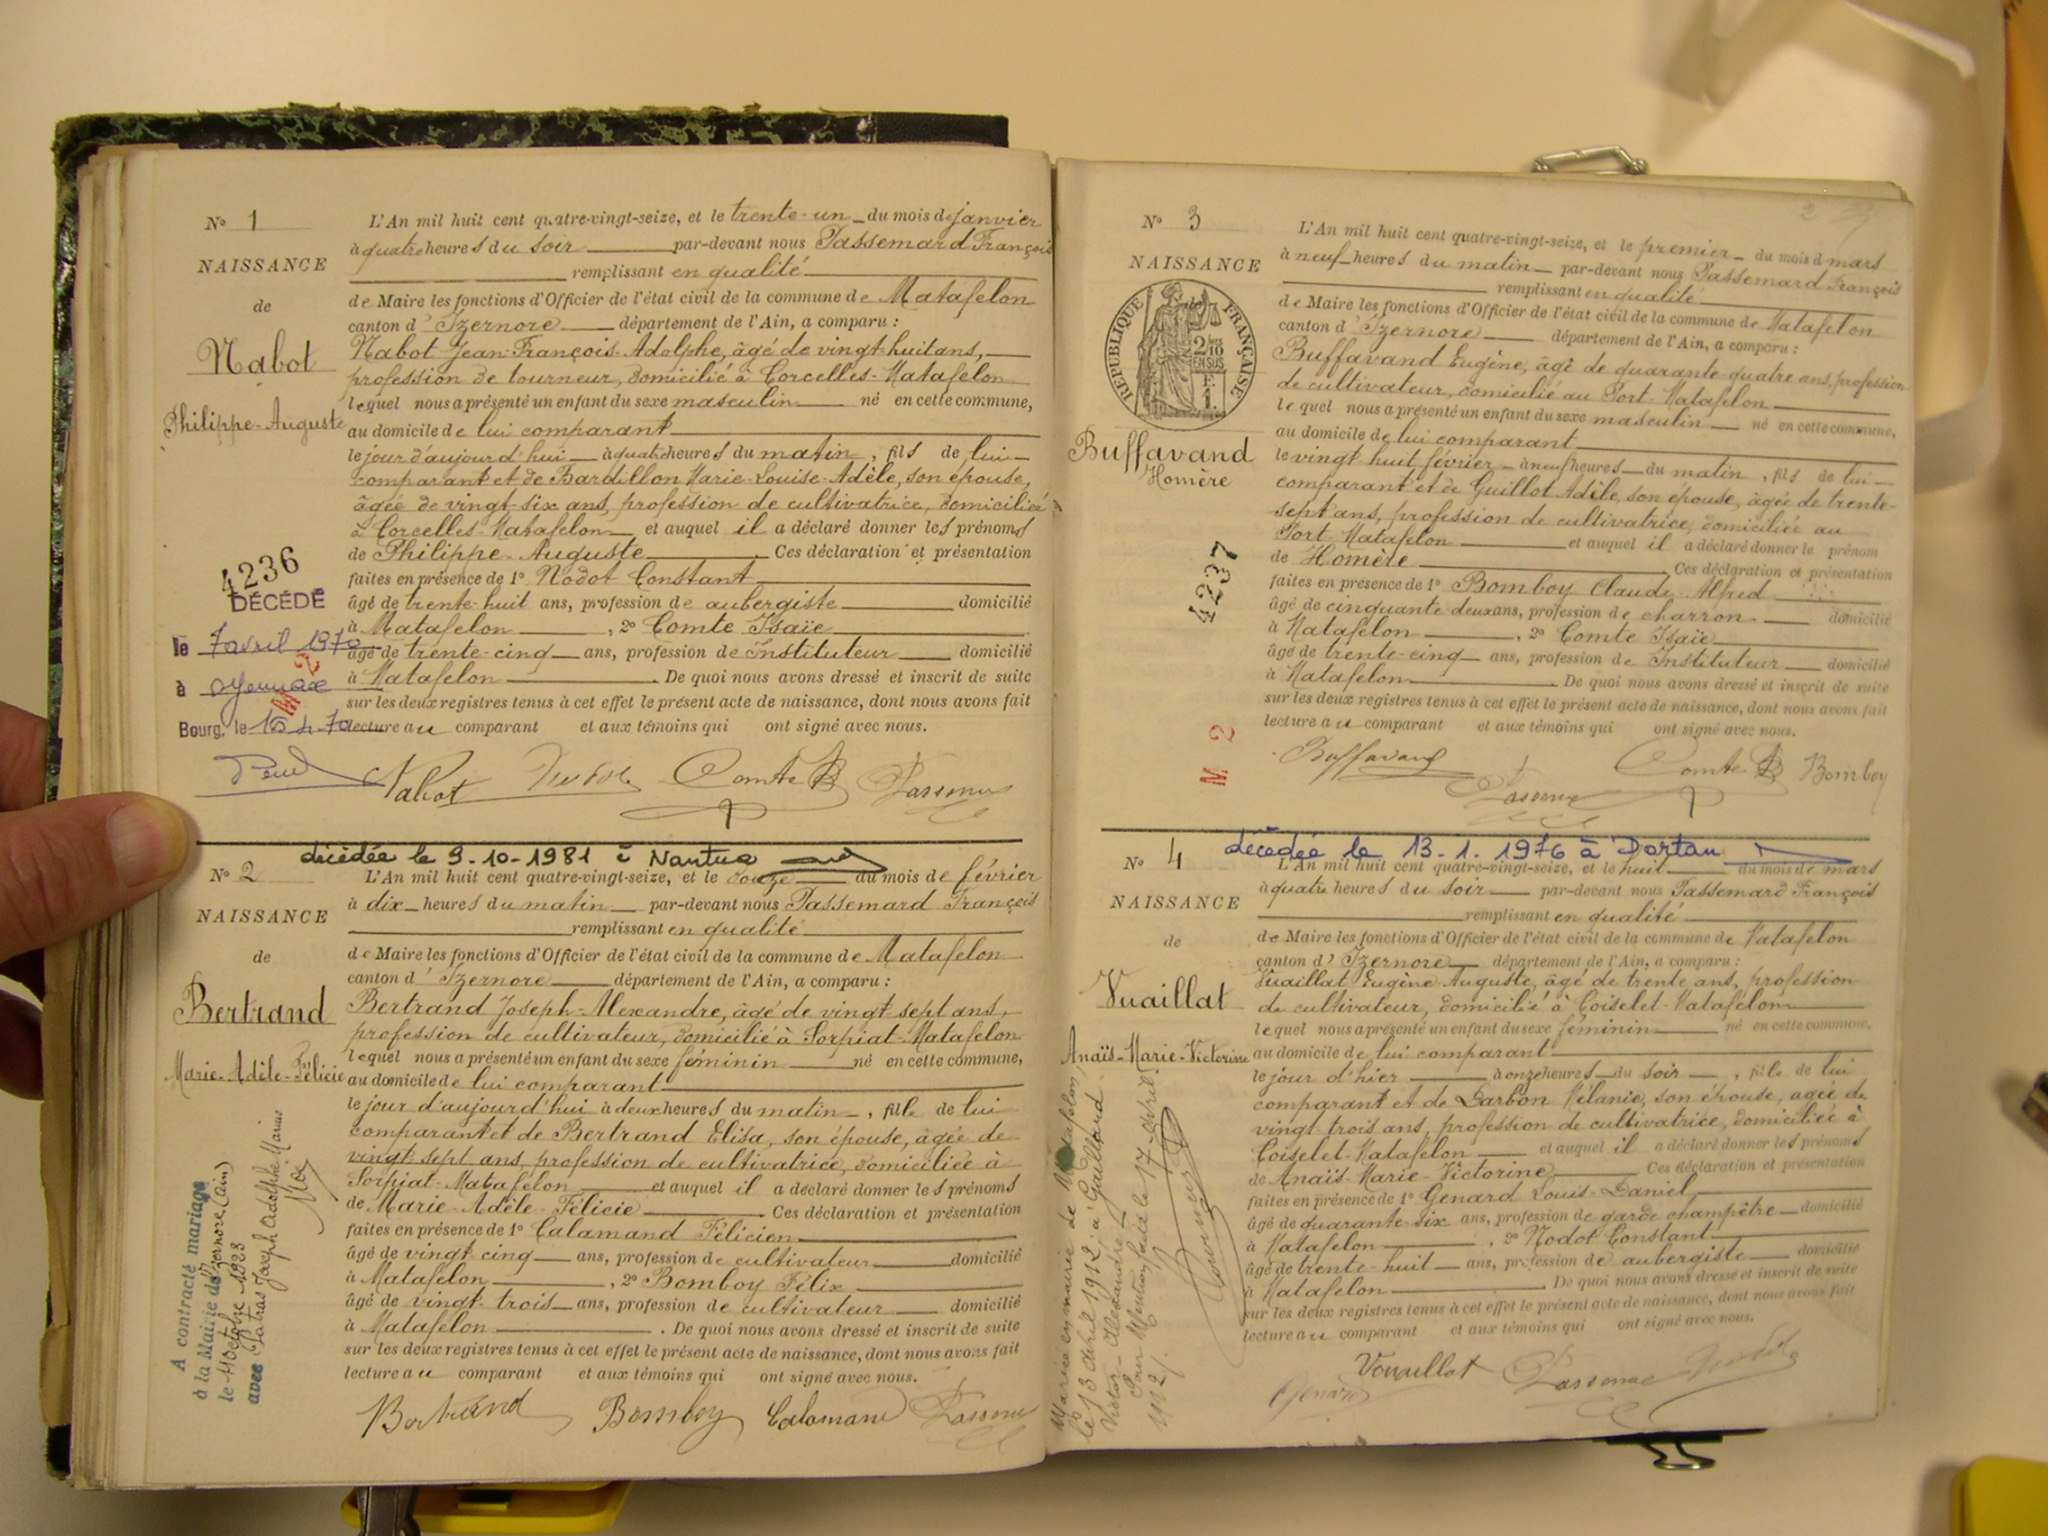 N° 1
NAISSANCE
de
Nabot
Philippe-Auguste
4236
DÉCÉDÉ
le 7 avril 1970
à Oyonnax
M 2
Bourg, le 16 4 70
L'An mil huit cent quatre-vingt-seize, et le trente-un du mois de janvier
à quatre heures du soir par-devant nous Passemard François
remplissant en qualité
de Maire les fonctions d'Officier de l'état civil de la commune de Matafelon
canton d'Izernore département de l'Ain, a comparu :
Nabot Jean-François-Adolphe, âgé de vingt-huit ans,
profession de tourneur, domicilié à Corcelles-Matafelon
lequel nous a présenté un enfant du sexe masculin né en cette commune,
au domicile de lui comparant
le jour d'aujourd'hui à quatre heures du matin, fils de lui
comparant et de Bardillon Marie-Louise-Adèle, son épouse,
âgée de vingt-six ans, profession de cultivatrice, domiciliée
à Corcelles-Matafelon et auquel il a déclaré donner les prénoms
de Philippe-Auguste Ces déclaration et présentation
faites en présence de 1° Nodot Constant
âgé de trente-huit ans, profession de aubergiste domicilié
à Matafelon, 2° Comte Isaïe
âgé de trente-cinq ans, profession de Instituteur domicilié
à Matafelon. De quoi nous avons dressé et inscrit de suite
sur les deux registres tenus à cet effet le présent acte de naissance, dont nous avons fait
lecture au comparant et aux témoins qui ont signé avec nous.
Nabot Nodot Comte Passemard
décédée le 9-10-1981 à Nantua
N° 2
NAISSANCE
de
Bertrand
Marie-Adèle-Félicie
A contracté mariage
à la Mairie de Izernore (Ain)
le 4 Octobre 1923
avec Patras Joseph Adolphe Marius
L'An mil huit cent quatre-vingt-seize, et le douze du mois de février
à dix heures du matin par-devant nous Passemard François
remplissant en qualité
de Maire les fonctions d'Officier de l'état civil de la commune de Matafelon
canton d'Izernore département de l'Ain, a comparu :
Bertrand Joseph-Alexandre, âgé de vingt-sept ans,
profession de cultivateur, domicilié à Sorpiat-Matafelon
lequel nous a présenté un enfant du sexe féminin né en cette commune,
au domicile de lui comparant
le jour d'aujourd'hui à deux heures du matin, fille de lui
comparant et de Bertrand Elisa, son épouse, âgée de
vingt-sept ans, profession de cultivatrice, domiciliée à
Sorpiat-Matafelon et auquel il a déclaré donner les prénoms
de Marie-Adèle-Félicie Ces déclaration et présentation
faites en présence de 1° Calamand Félicien
âgé de vingt-cinq ans, profession de cultivateur domicilié
à Matafelon, 2° Bomboy Félix
âgé de vingt-trois ans, profession de cultivateur domicilié
à Matafelon. De quoi nous avons dressé et inscrit de suite
sur les deux registres tenus à cet effet le présent acte de naissance, dont nous avons fait
lecture au comparant et aux témoins qui ont signé avec nous.
Bertrand Bomboy Calamand Passemard
2
N° 3
NAISSANCE
RÉPUBLIQUE FRANÇAISE
2/10 EN SUS
Buffavand
Homère
4237
M. 2
L'An mil huit cent quatre-vingt-seize, et le premier du mois d mars
à neuf heures du matin par-devant nous Passemard François
remplissant en qualité
de Maire les fonctions d'Officier de l'état civil de la commune de Matafelon
canton d'Izernore département de l'Ain, a comparu :
Buffavand Eugène, âgé de quarante-quatre ans, profession
de cultivateur, domicilié au Port-Matafelon
lequel nous a présenté un enfant du sexe masculin né en cette commune,
au domicile de lui comparant
le vingt-huit février à neuf heures du matin, fils de lui
comparant et de Guillot Adèle, son épouse, âgée de trente-
sept ans, profession de cultivatrice, domiciliée au
Port-Matafelon et auquel il a déclaré donner le prénom
de Homère Ces déclaration et présentation
faites en présence de 1° Bomboy Claude-Alfred
âgé de cinquante-deux ans, profession de charron domicilié
à Matafelon, 2° Comte Isaïe
âgé de trente-cinq ans, profession de Instituteur domicilié
à Matafelon. De quoi nous avons dressé et inscrit de suite
sur les deux registres tenus à cet effet le présent acte de naissance, dont nous avons fait
lecture au comparant et aux témoins qui ont signé avec nous.
Buffavand Passemard Comte Bomboy
décédée le 13-1-1976 à Dortan
N° 4
NAISSANCE
de
Vuaillat
Anaïs-Marie-Victorine
Mariée en mairie de Matafelon,
le 13 Avril 1912, à Gaillard
Victor-Alexandre.
Pour Mention faite le 17 avril
1912.
L'An mil huit cent quatre-vingt-seize, et le huit du mois de mars
à quatre heures du soir par-devant nous Passemard François
remplissant en qualité
de Maire les fonctions d'Officier de l'état civil de la commune de Matafelon
canton d'Izernore département de l'Ain, a comparu :
Vuaillat Eugène-Auguste, âgé de trente ans, profession
de cultivateur, domicilié à Coiselet-Matafelon
lequel nous a présenté un enfant du sexe féminin né en cette commune,
au domicile de lui comparant
le jour d'hier à onze heures du soir, fille de lui
comparant et de Darbon Mélanie, son épouse, âgée de
vingt-trois ans, profession de cultivatrice, domiciliée à
Coiselet-Matafelon et auquel il a déclaré donner les prénoms
de Anaïs-Marie-Victorine Ces déclaration et présentation
faites en présence de 1° Genard Louis-Daniel,
âgé de quarante-six ans, profession de garde champêtre domicilié
à Matafelon, 2° Nodot Constant
âgé de trente-huit ans, profession de aubergiste domicilié
à Matafelon. De quoi nous avons dressé et inscrit de suite
sur les deux registres tenus à cet effet le présent acte de naissance, dont nous avons fait
lecture au comparant et aux témoins qui ont signé avec nous.
Genard Vouaillat Passemard Nodot